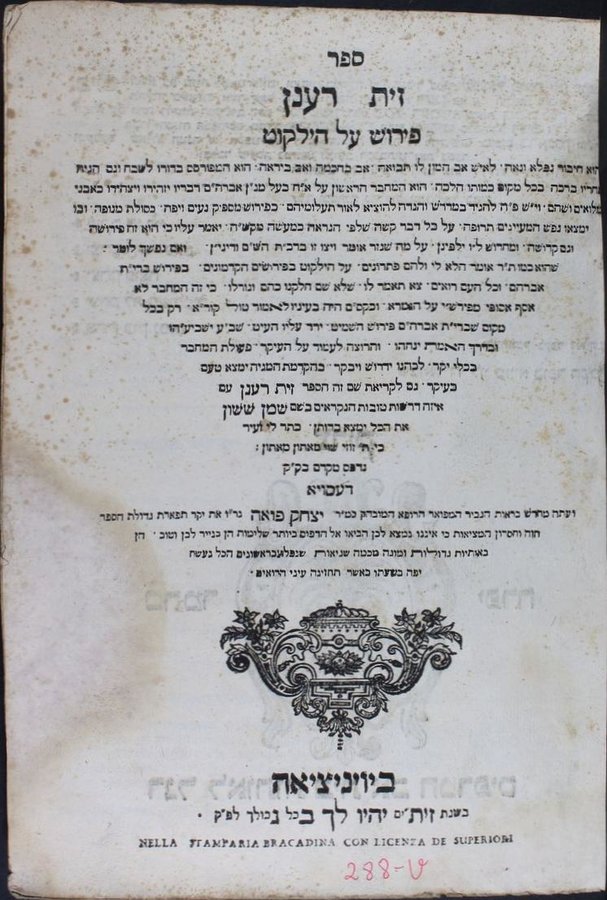 ספר
זית רענן
פירוש על הילקוט
הוא חיבור נפלא ונאה. לאיש אב המון לו תבואה. אב בחכמה ואב ביראה. הוא המפורסם בדורו לשבח וגם הניח
אחריו ברכה בכל מקום כמותו הלכה. הוא המחבר הראשון על א״ח בעל מגן אברה״ם דבריו יזהירו ויצהירו כאבני
מלואים ושהם. וי״ש פ״ה להגיד במדרש והגדה להוציא לאור תעלומיהם. כפירוש מספיק נעים ויפה. כסולת מנופה. ובו
ימצאו נפש המעיינים תרופה. על כל דבר קשה שלפי הנראה כמעשה מקש״ה. יאמר עליו כי הוא זה פירושה
וגם קדושה. ומחדוש ל״ו ילפינן. על מה שגזר אומר ויצו זו ברכ״ת הש״ם ודיני״ן. ואם נפשך לומר:
שהוא כמות״ר אומר הלא לי ולהם פתרונים. על הילקוט בפירושים הקדמונים. בפירוש ברי״ת
אברהם. וכל העם רואים. צא תאמר לו. שלא שם חלקנו בהם וגורלו. כי זה המחבר לא
אסף אסופי מפירש״י על הגמרא. וכקסם היה בעיניו לאמור טול קור״א. רק בכל
מקום שברי״ת אברה״ם פירוש השמיט. ירד עליו העיט. שב״ע ישביע״הו
ובדרך האמת ינחהו. והרוצה לעמוד על העיקר. פעולת המחבר
בכלי יקר. לכהנו ידרוש ויבקר. בהקדמת המגיה ימצא טעם
בעיקר. גם לקריאת שם זה הספר זית רענן עם
איזה דרשות טובות הנקראים בשם שמן ששון
את הכל ימצא ברותן. כתר לי זעיר
כי ת׳ זוזי שוי מאתון מאתון:
נדפס מקדם בק״ק
דעסויא
ועתה מחדש כראות הגביר המפואר הרופא המובהק כמ״ר יצחק פואה נר״ו את יקר תפארת גדולת הספר
הזה וחסרון המציאות כי איננו נמצא לכן הביאו אל הדפוס ביותר שלימות הן בנייר לבן וטוב. הן
באותיות גדוליות ומוגה מכמה שגיאות שנפלו בראשונים הכל נעשה
יפה בשעתו כאשר תחזינה עיני הרואים:
בויניציאה
בשנת זית״ים יהיו לך בכל גבולך לפ״ק.
NELLA STAMPARIA BRAGADINA CON LICENZA DE SUPERIORI
288-V